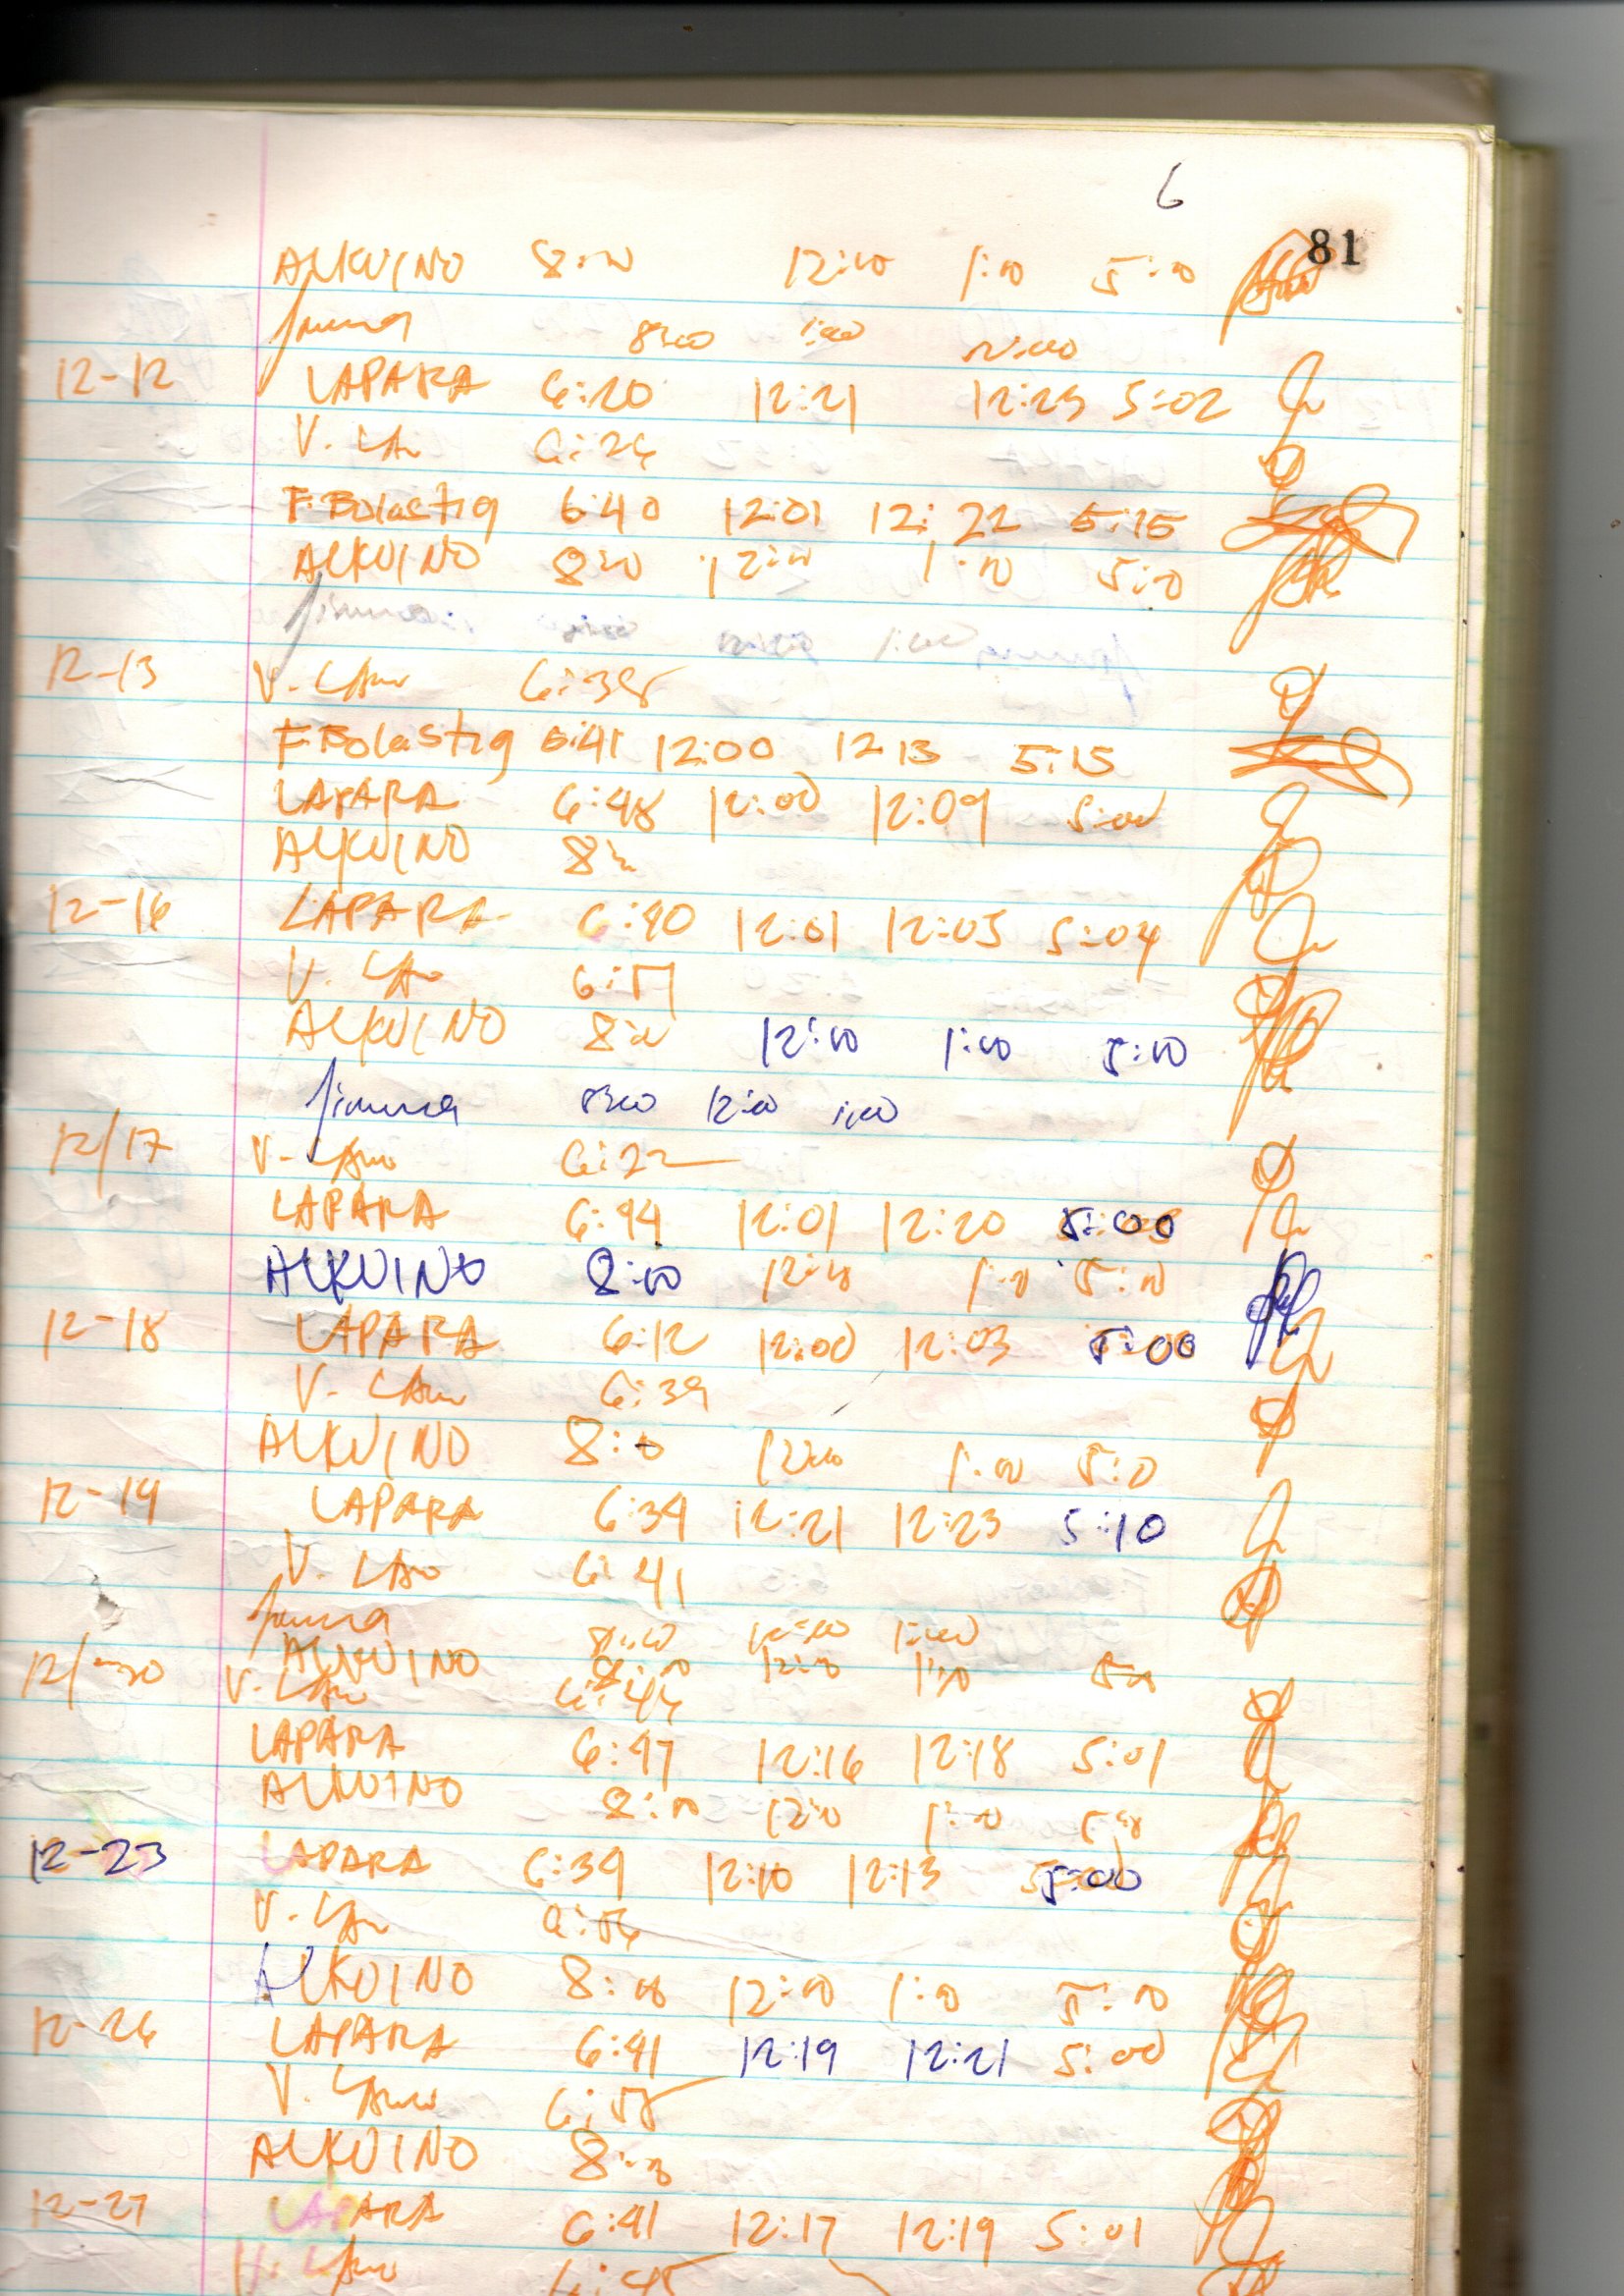 6
81
ALKUINO 8:00 12:00 1:00 5:00
8:00 1:00 12:00
12-12 LAPARA 6:20 12:21 12:23 5:02
V. 6:26
F. Bolastig 6:40 12:01 12:22 5:15
ALKUINO 8:00 12:00 1:00 5:00
1:00
12-13 V. 6:38
F. Bolastig 6:41 12:00 12 13 5:15
LAPARA 6:48 12:00 12:09 5:00
ALKUINO 8:00
12-16 LAPARA 6:40 12:01 12:03 5:04
V. 6:51
ALKUINO 8:00 12:00 1:00 5:00
8:00 12:00 1:00
12/17 V. 6:22
LAPARA 6:44 12:01 12:20 5:00
ALKUINO 8:00 12:00 1:00 5:00
12-18 LAPARA 6:12 12:00 12:03 5:00
V. 6:39
ALKUINO 8:00 12:00 1:00 5:00
12-19 LAPARA 6:39 12:21 12:23 5:10
V. 6:41
8:00 12:00 1:00
ALKUINO 8:00 12:00 1:00 5:00
V. 6:46
LAPARA 6:47 12:16 12:18 5:01
ALKUINO 8:00 12:00 1:00 5:00
12-23 LAPARA 6:39 12:10 12:13 5:00
V.
ALKUINO 8:00 12:00 1:00 5:00
12-26 LAPARA 6:41 12:19 12:21 5:00
V. 6:58
ALKUINO 8:00
12-27 LAPARA 6:41 12:17 12:19 5:01
6:45